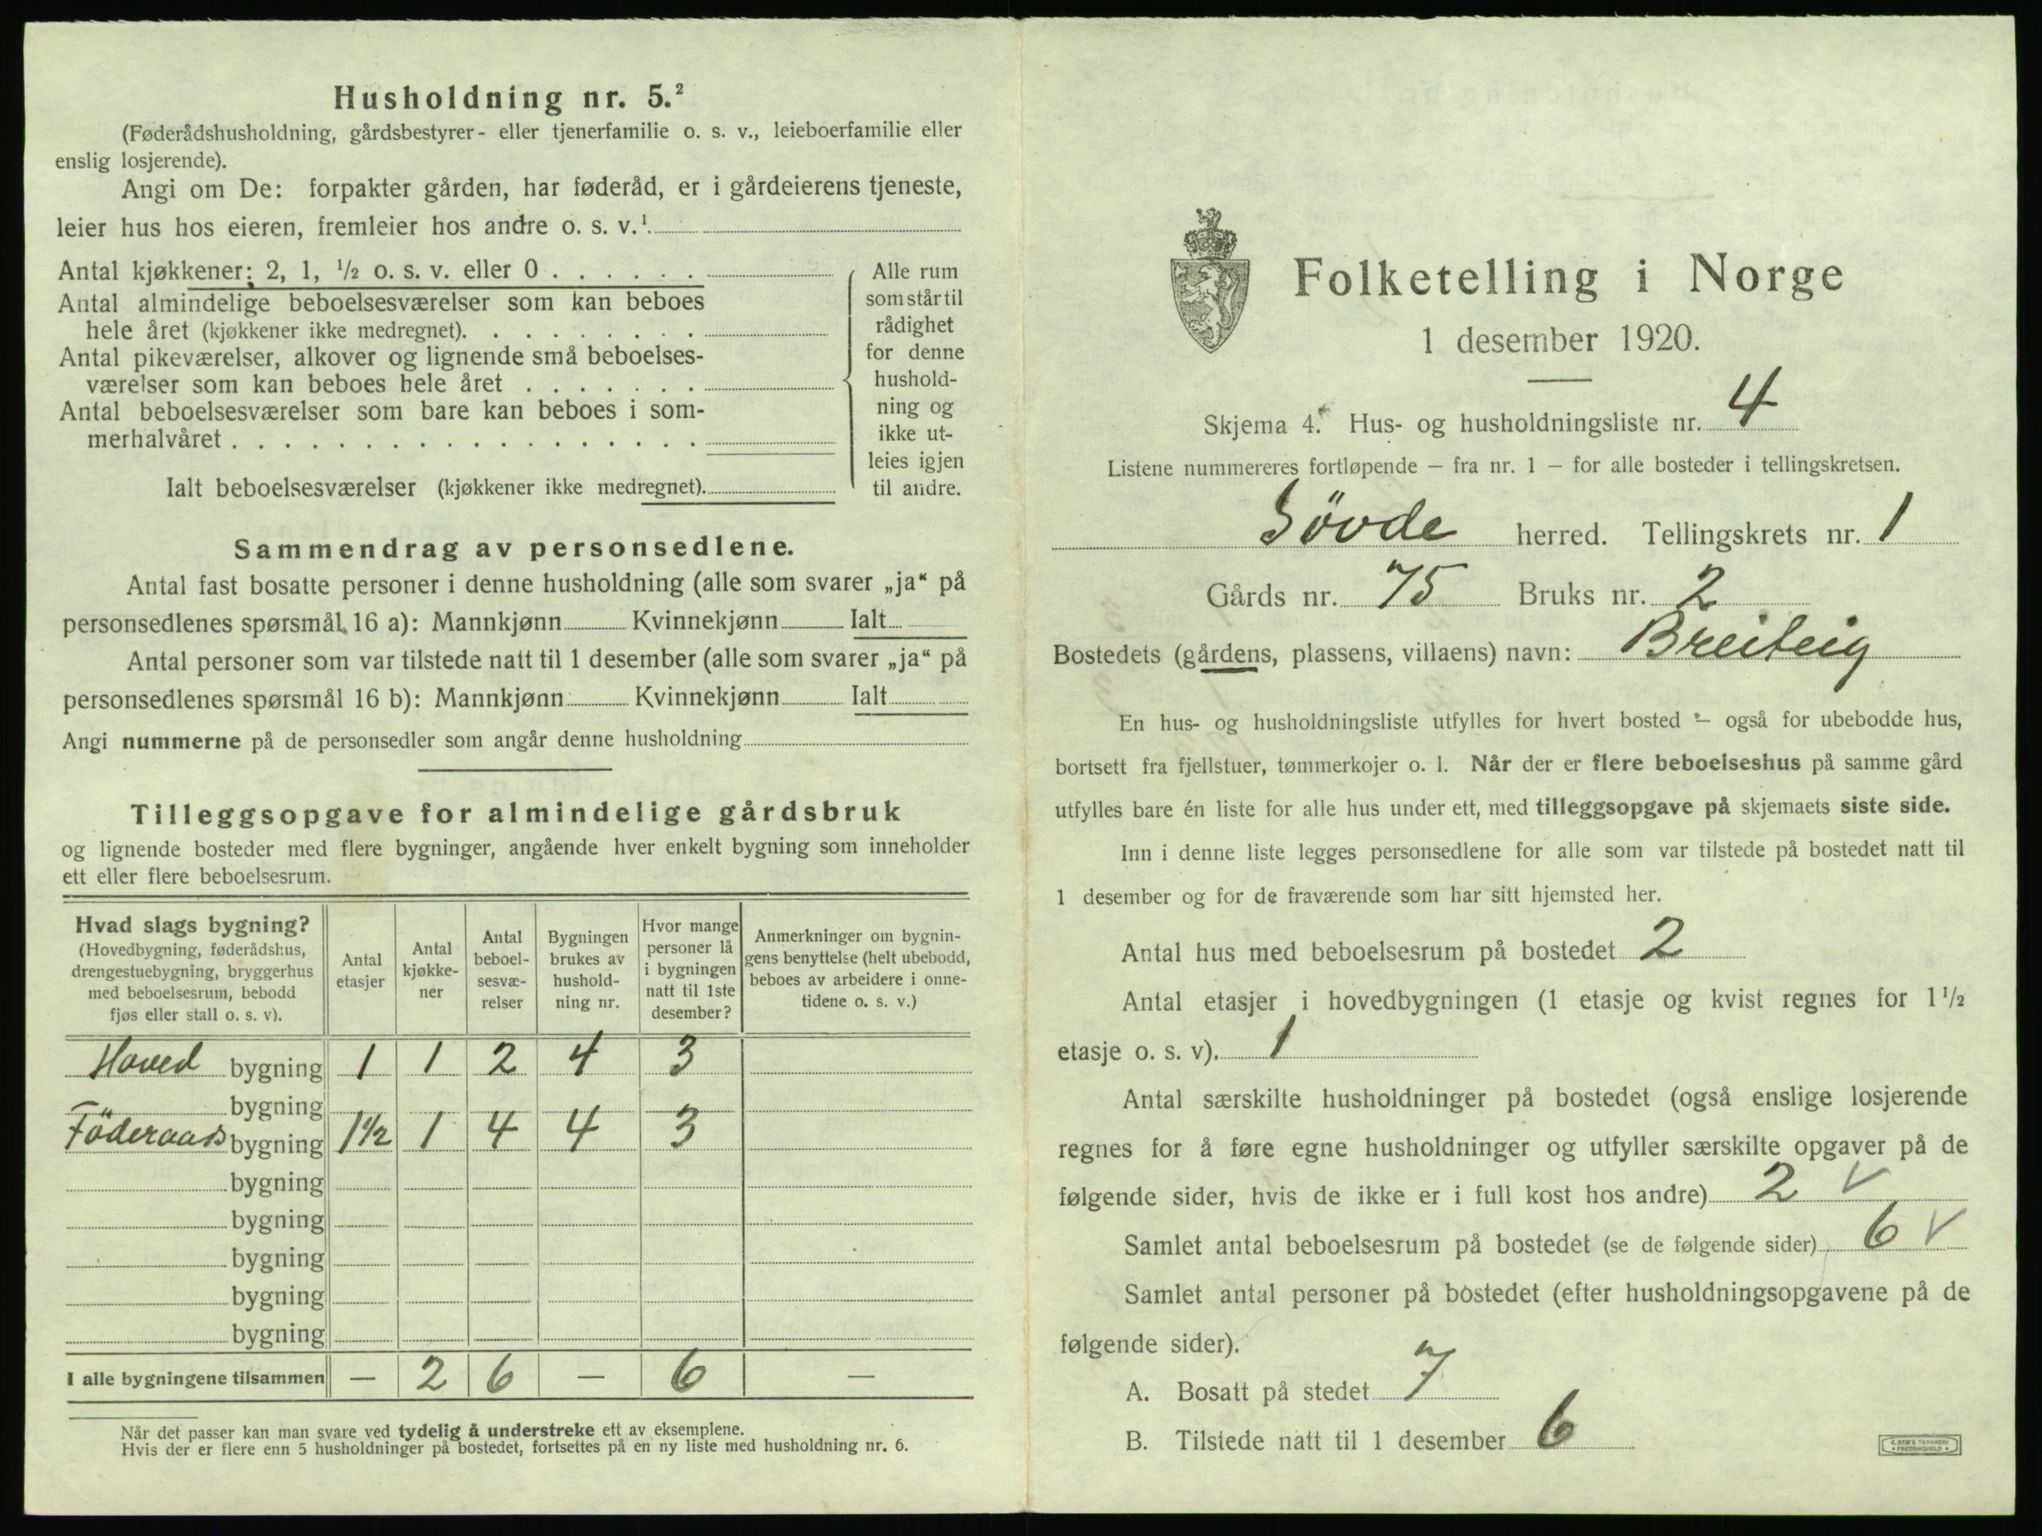 Husholdning nr. 5.²
(Føderådshusholdning, gårdsbestyrer- eller tjenerfamilie o. s. v., leieboerfamilie eller
enslig losjerende).
Angi om De: forpakter gården, har føderåd, er i gårdeierens tjeneste,
leier hus hos eieren, fremleier hos andre o. s. v.¹
Antal kjøkkener: 2, 1, ½ o. s. v. eller 0 . . . . . .
Antal almindelige beboelsesværelser som kan beboes
hele året (kjøkkener ikke medregnet). . . . . . . . .
Antal pikeværelser, alkover og lignende små beboelses-
værelser som kan beboes hele året . . . . . . .
Antal beboelsesværelser som bare kan beboes i som-
merhalvåret . . . . . . . . . . . . . . . . . .
Alle rum
som står til
rådighet
for denne
hushold-
ning og
ikke ut-
leies igjen
til andre.
Ialt beboelsesværelser (kjøkkener ikke medregnet).
Sammendrag av personsedlene.
Antal fast bosatte personer i denne husholdning (alle som svarer „ja“ på
personsedlenes spørsmål 16 a): Mannkjønn Kvinnekjønn Ialt
Antal personer som var tilstede natt til 1 desember (alle som svarer „ja“ på
personsedlenes spørsmål 16 b): Mannkjønn Kvinnekjønn Ialt
Angi nummerne på de personsedler som angår denne husholdning
Tilleggsopgave for almindelige gårdsbruk
og lignende bosteder med flere bygninger, angående hver enkelt bygning som inneholder
ett eller flere beboelsesrum.
Hvad slags bygning?
(Hovedbygning, føderådshus,
drengestuebygning, bryggerhus
med beboelsesrum, bebodd
fjøs eller stall o. s. v).
Antal
etasjer
Antal
kjøkke-
ner
Antal
beboel-
sesvæ-
relser
Bygningen
brukes av
hushold-
ning nr.
Hvor mange
personer lå
i bygningen
natt til 1ste
desember?
Anmerkninger om bygnin-
gens benyttelse (helt ubebodd,
beboes av arbeidere i onne-
tidene o. s. v.)
Hoved bygning 1 1 2 4 3
bygning
Föderaads bygning 1½ 1 4 4 3
bygning
bygning
bygning
bygning
bygning
I alle bygningene tilsammen — 2 6 — 6 —
Når det passer kan man svare ved tydelig å understreke ett av eksemplene.
Hvis der er flere enn 5 husholdninger på bostedet, fortsettes på en ny liste med husholdning nr. 6.
Folketelling i Norge
1 desember 1920.
Skjema 4. Hus- og husholdningsliste nr. 4
Listene nummereres fortløpende – fra nr. 1 – for alle bosteder i tellingskretsen.
Sövde herred. Tellingskrets nr. 1
Gårds nr. 75 Bruks nr. 2
Bostedets (gårdens, plassens, villaens) navn: Breiteig
En hus- og husholdningsliste utfylles for hvert bosted – også for ubebodde hus,
bortsett fra fjellstuer, tømmerkojer o. l. Når der er flere beboelseshus på samme gård
utfylles bare én liste for alle hus under ett, med tilleggsopgave på skjemaets siste side.
Inn i denne liste legges personsedlene for alle som var tilstede på bostedet natt til
1 desember og for de fraværende som har sitt hjemsted her.
Antal hus med beboelsesrum på bostedet 2
Antal etasjer i hovedbygningen (1 etasje og kvist regnes for 1½
etasje o. s. v). 1
Antal særskilte husholdninger på bostedet (også enslige losjerende
regnes for å føre egne husholdninger og utfyller særskilte opgaver på de
følgende sider, hvis de ikke er i full kost hos andre) 2 ✓
Samlet antal beboelsesrum på bostedet (se de følgende sider) 6 ✓
Samlet antal personer på bostedet (efter husholdningsopgavene på de
følgende sider).
A. Bosatt på stedet 7
B. Tilstede natt til 1 desember 6